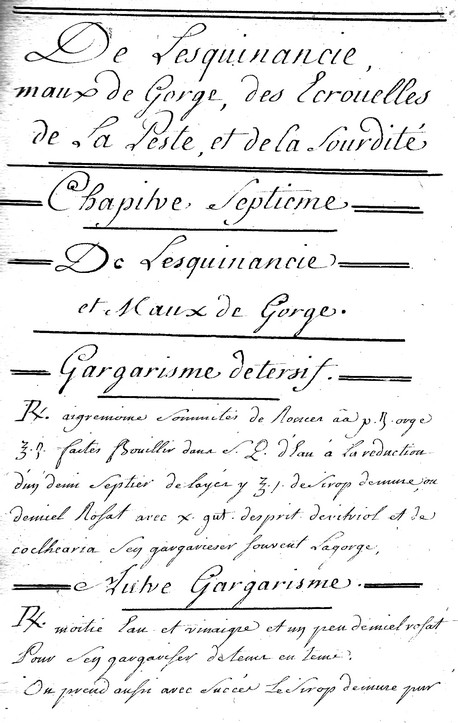 De Lesquinancie,
maux de Gorge, des Ecrouelles
de La Peste, et de la Sourdité
Chapitre Septieme
De Lesquinancie
et Maux de Gorge.
Gargarisme detersif.
℞. aigremoine Sommités de Ronces āā p. orge
faites Bouillir dans S. Q. d'Eau à La reduction
d'un demi Septier delayés y ʒ. j. de Sirop de mure, ou
de miel Rosat avec x. gut. desprit de vitriol et de
coclhearia Sen gargarieser Souvent La gorge,
Autre Gargarisme.
℞. moitié Eau et vinaigre et un peu de miel rosat
Pour Sen gargariser de tems en tems.
On prend aussi avec Succès Le Sirop de mure pur